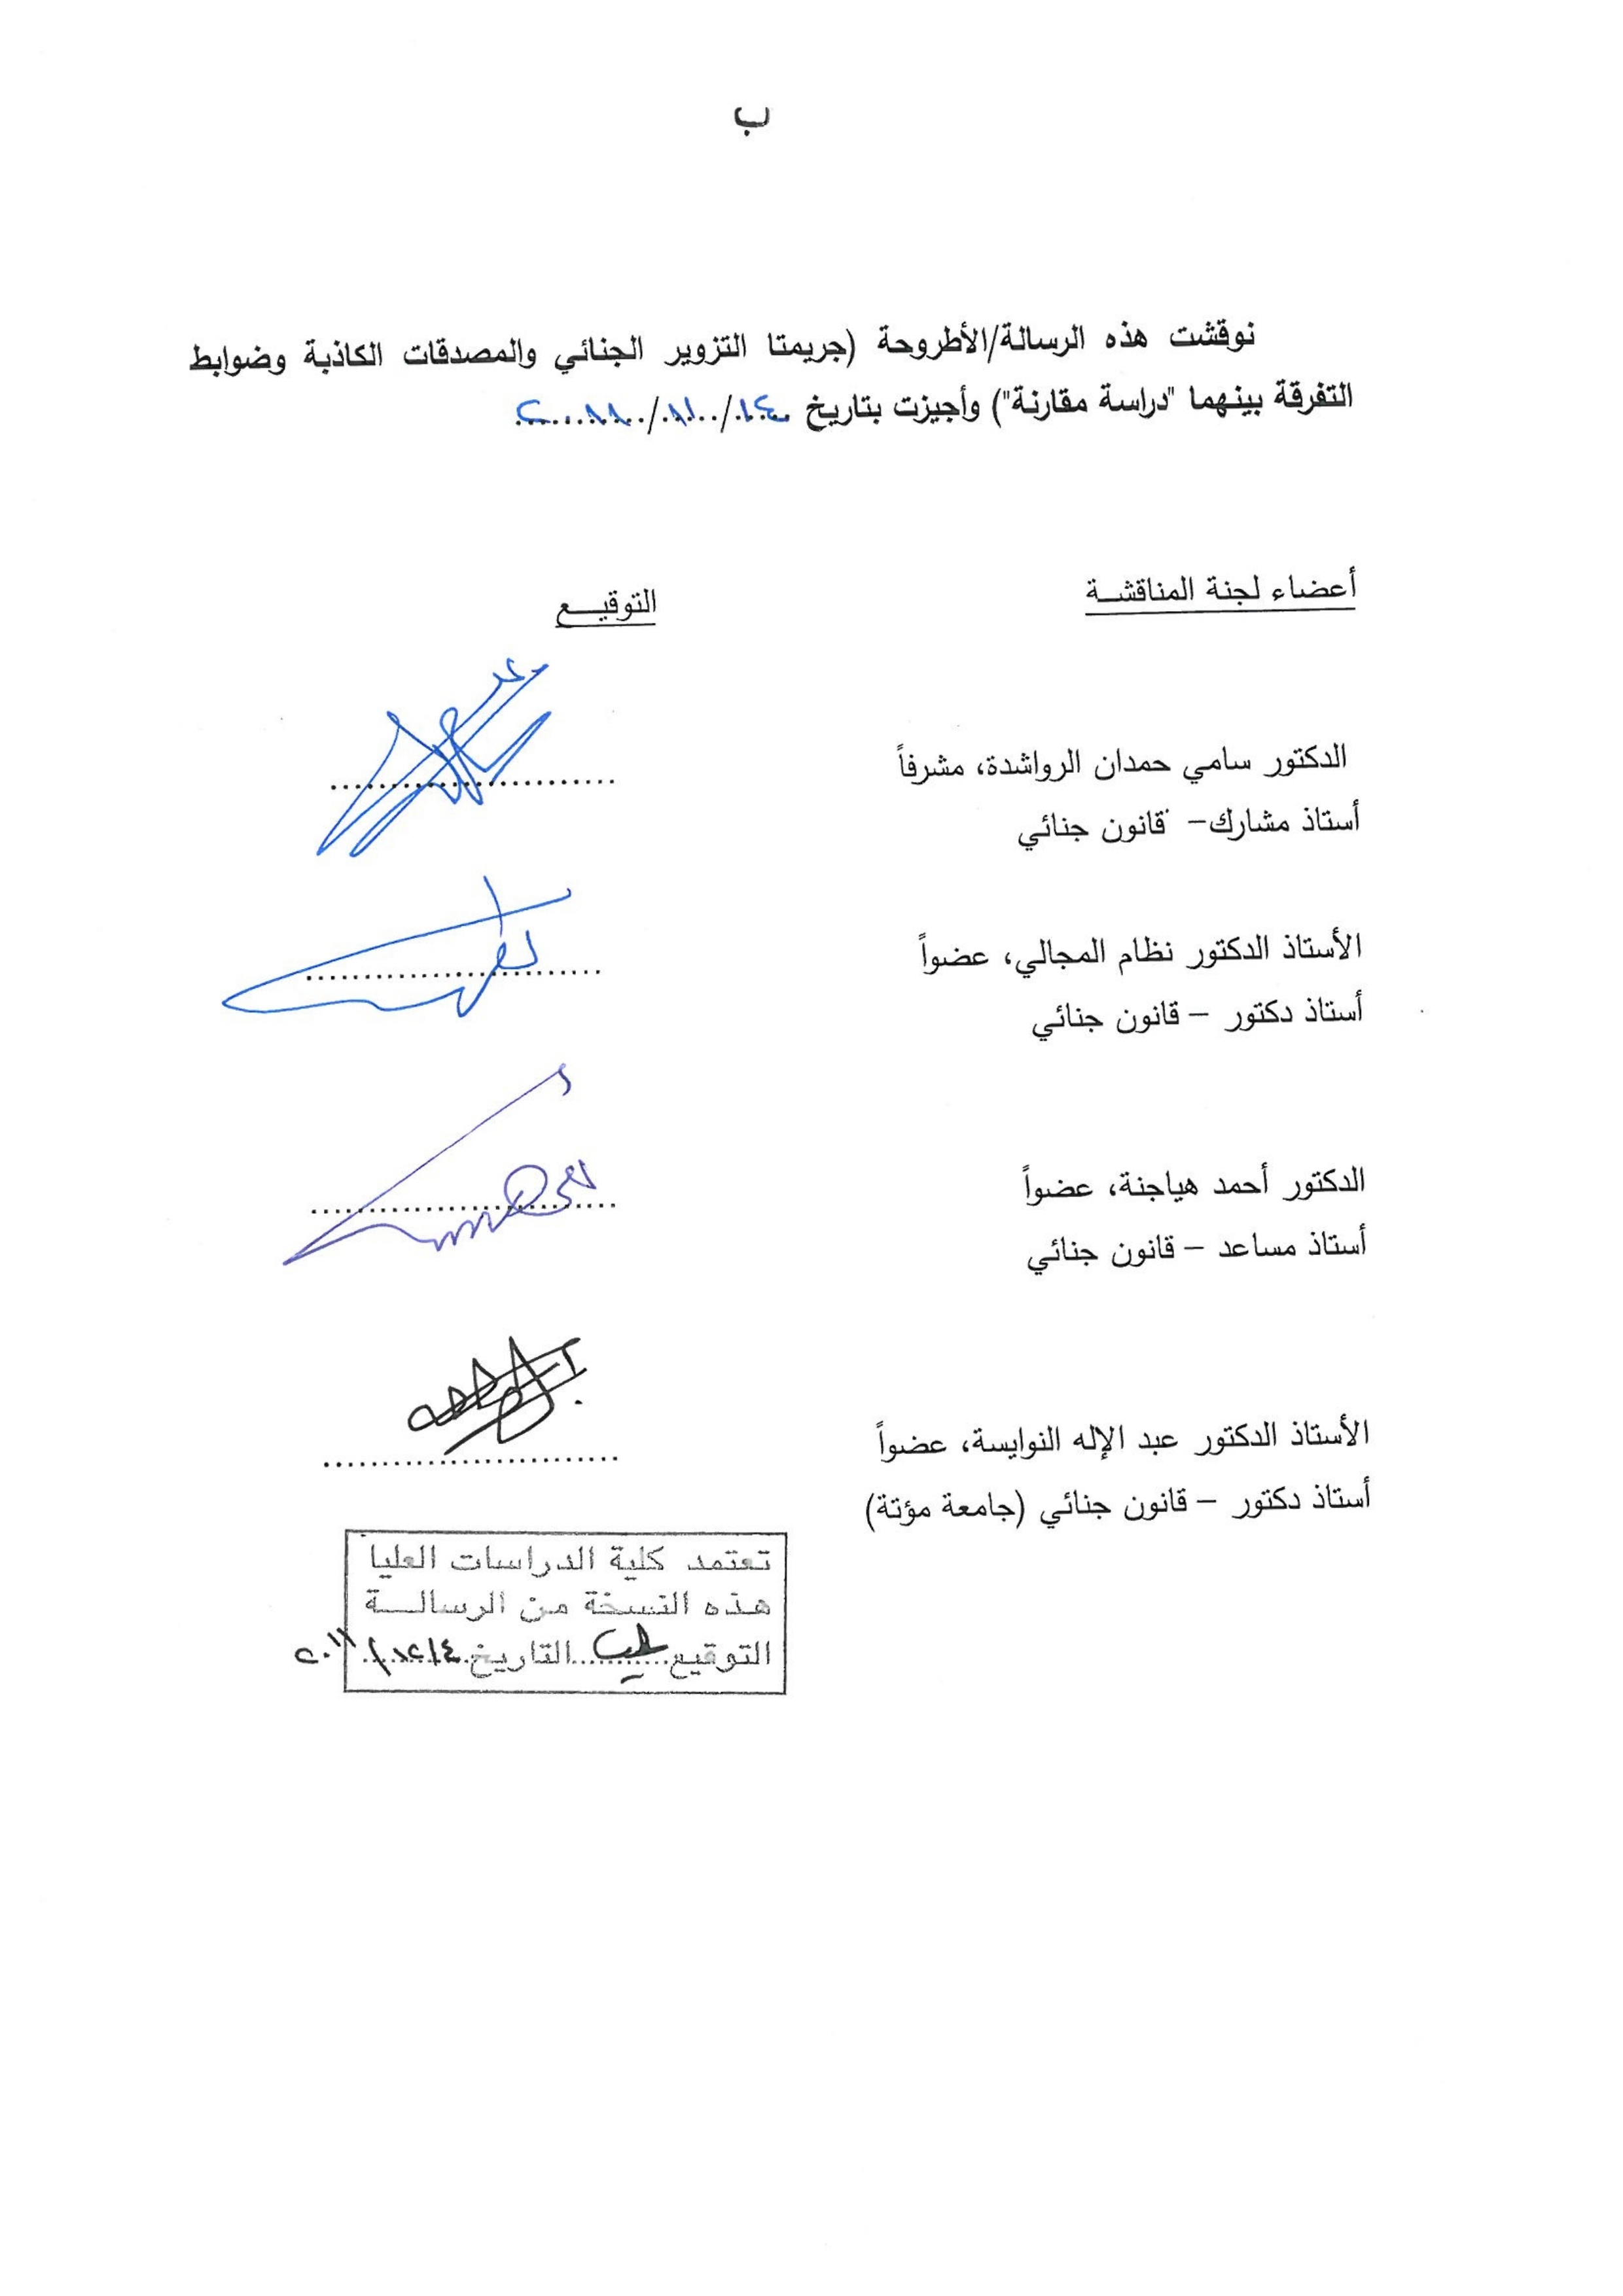 ب
نوقشت هذه الرسالة/الأطروحة (جريمتا التزوير الجنائي والمصدقات الكاذبة وضوابط
التفرقة بينهما "دراسة مقارنة") وأجيزت بتاريخ ٢٤/١١/٢٠١١
أعضاء لجنة المناقشــة
التوقيــــع
الدكتور سامي حمدان الرواشدة، مشرفاً
أستاذ مشارك- قانون جنائي
الأستاذ الدكتور نظام المجالي، عضواً
أستاذ دكتور – قانون جنائي
الدكتور أحمد هياجنة، عضواً
أستاذ مساعد – قانون جنائي
الأستاذ الدكتور عبد الإله النوايسة، عضواً
أستاذ دكتور – قانون جنائي (جامعة مؤتة)
تعتمد كلية الدراسات العليا
هذه النسخة من الرسالــة
التوقيع..........التاريخ ٤/١٢/٢٠١١